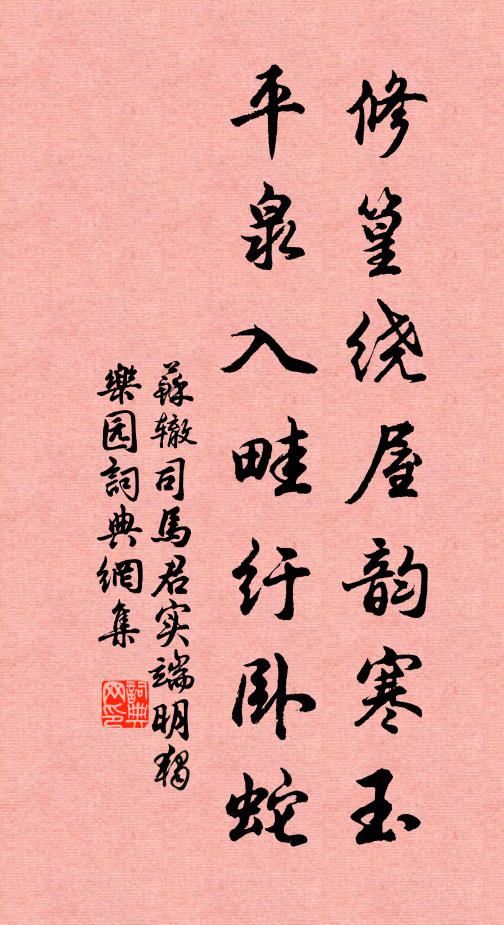 修篁绕屋韵寒玉
平泉入畦纡卧蛇
蘇辙司馬君实端明独
樂园詞典網集
詞典
网印